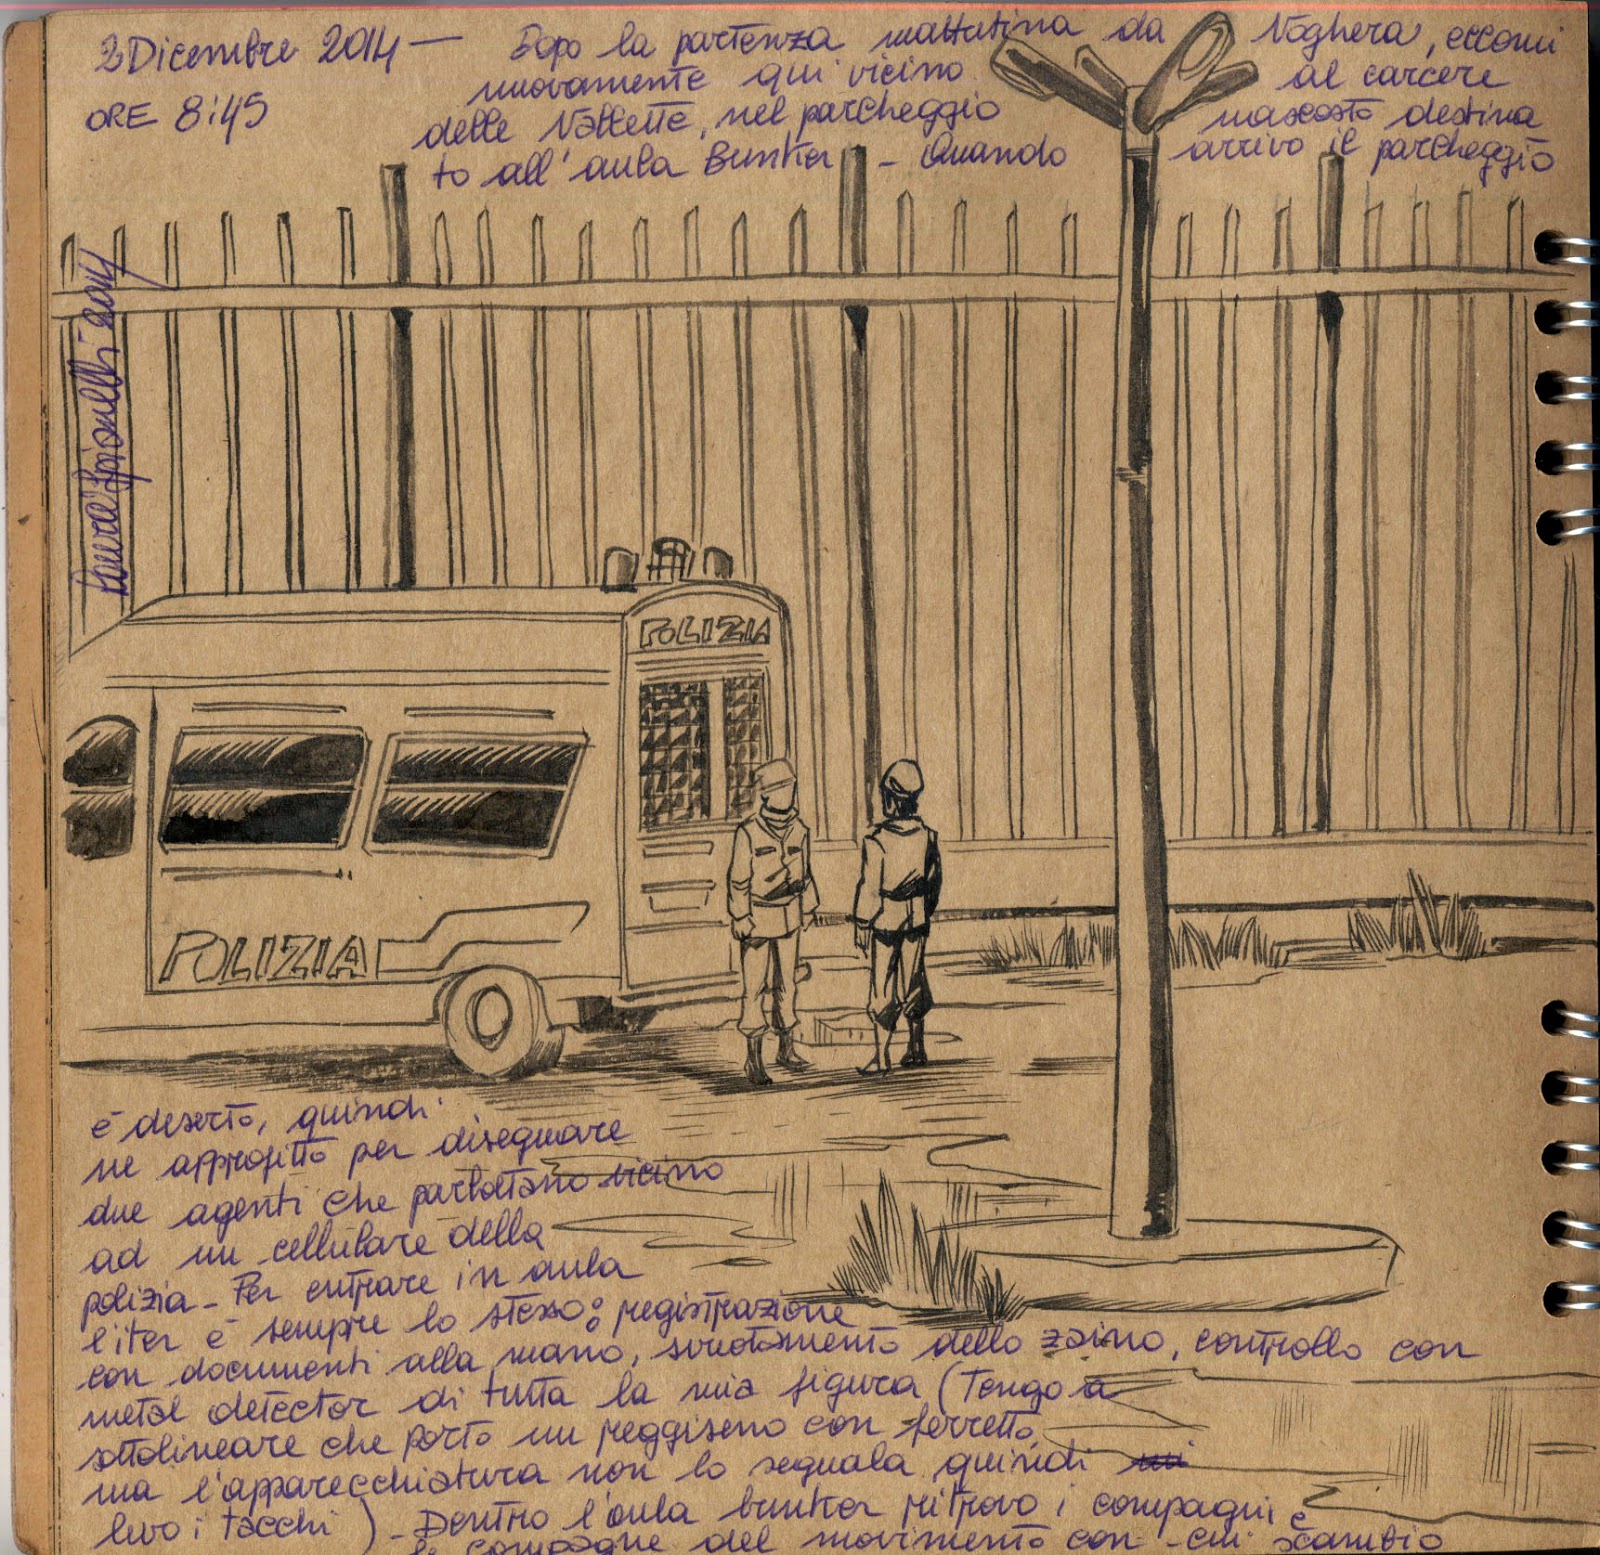 2 Dicembre 2014 — Dopo la partenza mattutina da Voghera, eccomi
ORE 8:45
nuovamente qui vicino al carcere
delle Vallette, nel parcheggio nascosto destina
to all'aula Bunker - Quando arrivo il parcheggio
2014
POLIZIA
POLIZIA
è deserto, quindi
ne approfitto per disegnare
due agenti che parlottano vicino
ad un cellulare della
polizia - Per entrare in aula
l'iter è sempre lo stesso: registrazione
con documenti alla mano, svuotamento dello zaino, controllo con
metal detector di tutta la mia figura (Tengo a
sottolineare che porto un reggiseno con ferretto
ma l'apparecchiatura non lo segnala quindi mi
levo i tacchi) - Dentro l'aula bunker ritrovo i compagni e
le compagne del movimento con cui scambio